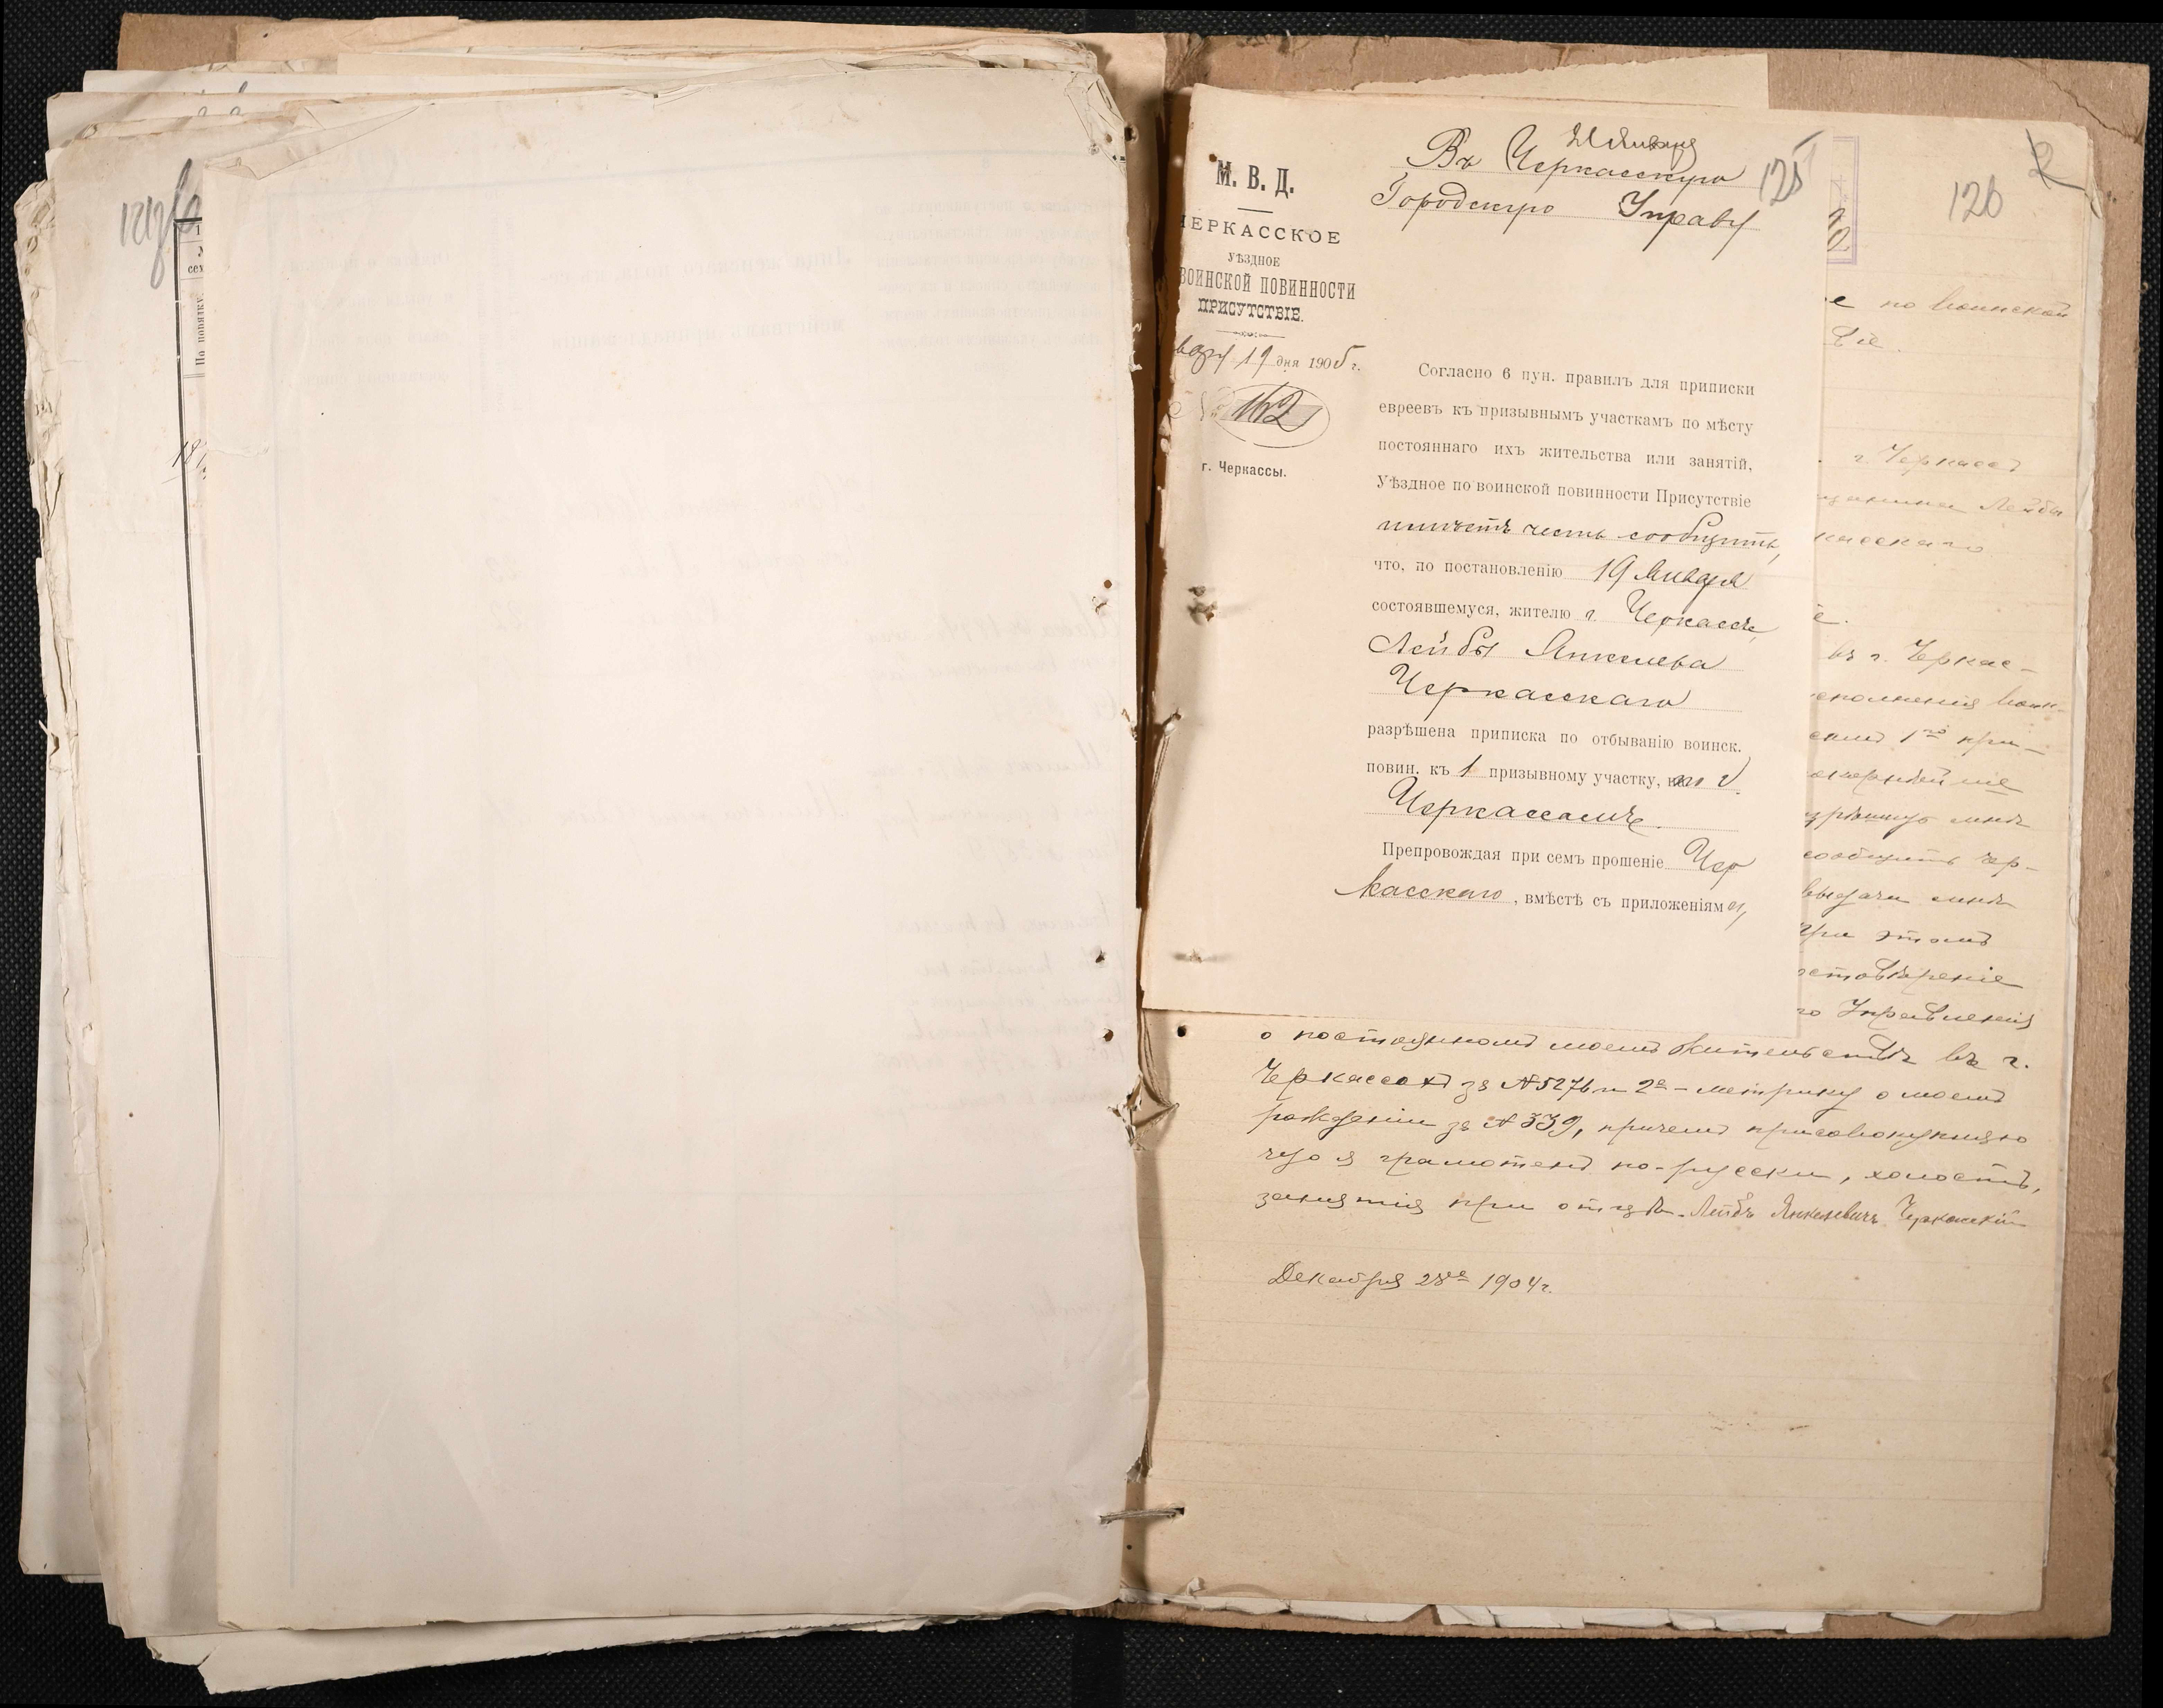 125
М. В. Д.
ЧЕРКАССКОЕ
УѢЗДНОЕ
ВОИНСКОЙ ПОВИННОСТИ
ПРИСУТСТВІЕ.
19 дня 1905 г.
№ 162
г. Черкассы.
Января
Въ Черкасскую
Городскую Управу
Согласно 6 пун. правилъ для приписки
евреевъ къ призывнымъ участкамъ по мѣсту
постояннаго ихъ жительства или занятій,
Уѣздное по воинской повинности Присутствіе
имѣетъ честь сообщить,
что, по постановленію 19 Января
состоявшемуся, жителю г. Черкассъ
Лейбы Янкелева
Черкасскаго
разрѣшена приписка по отбыванію воинск.
повин. къ 1 призывному участку, по г.
Черкассамъ.
Препровождая при семъ прошеніе Чер
касскаго, вмѣстѣ съ приложеніями,
126
2
е по воинской
г. Черкассъ
Лейбы
касскаго
въ г. Черкас-
1го при-
мнѣ
сообщить Чер-
выдачи мнѣ
При этомъ
го Управленія
о постоянномъ моемъ жительствѣ въ г.
Черкассахъ за №5276 и 2е - метрику о моемъ
рожденіи за №339, причемъ присовокупляю
что я грамотенъ по-русски, холостъ,
занятія при отцѣ. Лейбъ Янкелевичъ Черкасскій
Декабря 28го 1904г.
По порядку.